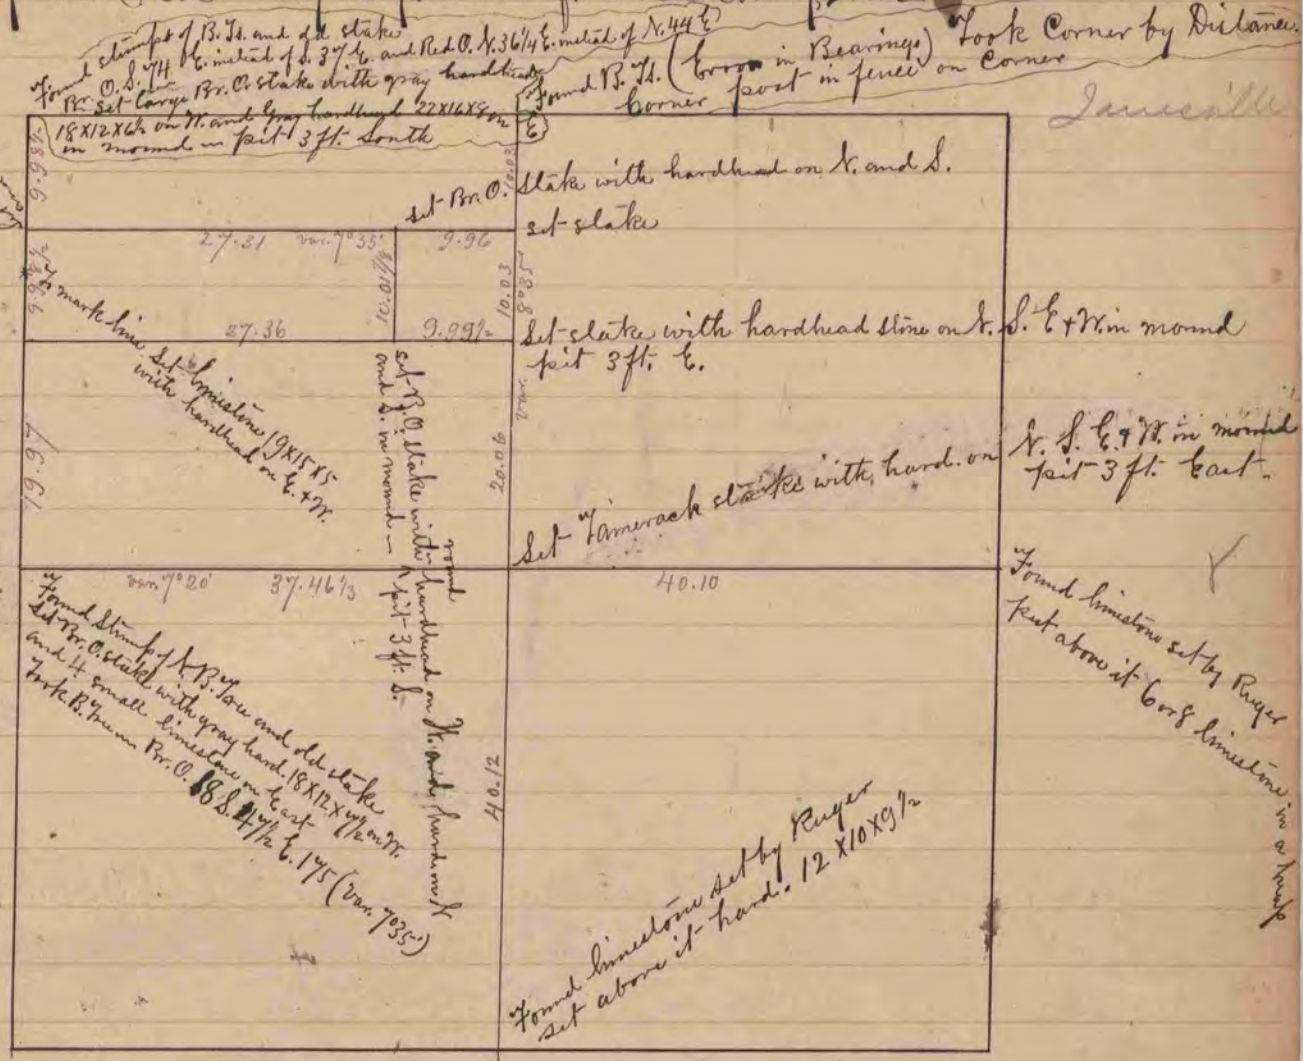 Found stumps of B. Ts. and old stake
Br. O. S. 74 E. instead of S. 37 E. and Red O. N. 36 1/4 E. instead of N. 44 E
Set large Br. O. stake with gray hardhead
18X12X6½ on W. and Gray hardhead 22X16X8 on E
in mound pit 3 ft. South
Found B. Ts. (Error in Bearings) Took Corner by Distance.
Corner post in fence on Corner
Janesville
10.03
set Br. O. Stake with hardhead on N. and S.
set stake
27.31 var. 7°35' 9.96
10.03
8°35'
var.
27.36 9.99½
Set stake with hardhead stone on N. S. E + W. in mound
pit 3 ft. E.
To mark line Set limestone 19X15X5
with hardhead on E. + W.
set B. O. stake with hardhead on W. and hard. on N
and S. in mound pit 3 ft. S.
20.06
Set Tamerack stake with hard. on N. S. E. & W. in mound
pit 3 ft. East.
19.97
var. 7°20' 37.46 1/3 40.10
Found Stump of N. B. Tree and old stake
Set Br. O. stake with gray hard. 18X12X7½ on W.
and 4 small limestone on East
Took B. Tree Br. O. 18 S. 47½ E. 175 (Var. 7°35')
Found limestone set by Ruger
put above it 6 or 8 limestone in a heap
40.12
Found limestone set by Ruger
set above it hard. 12X10X9½